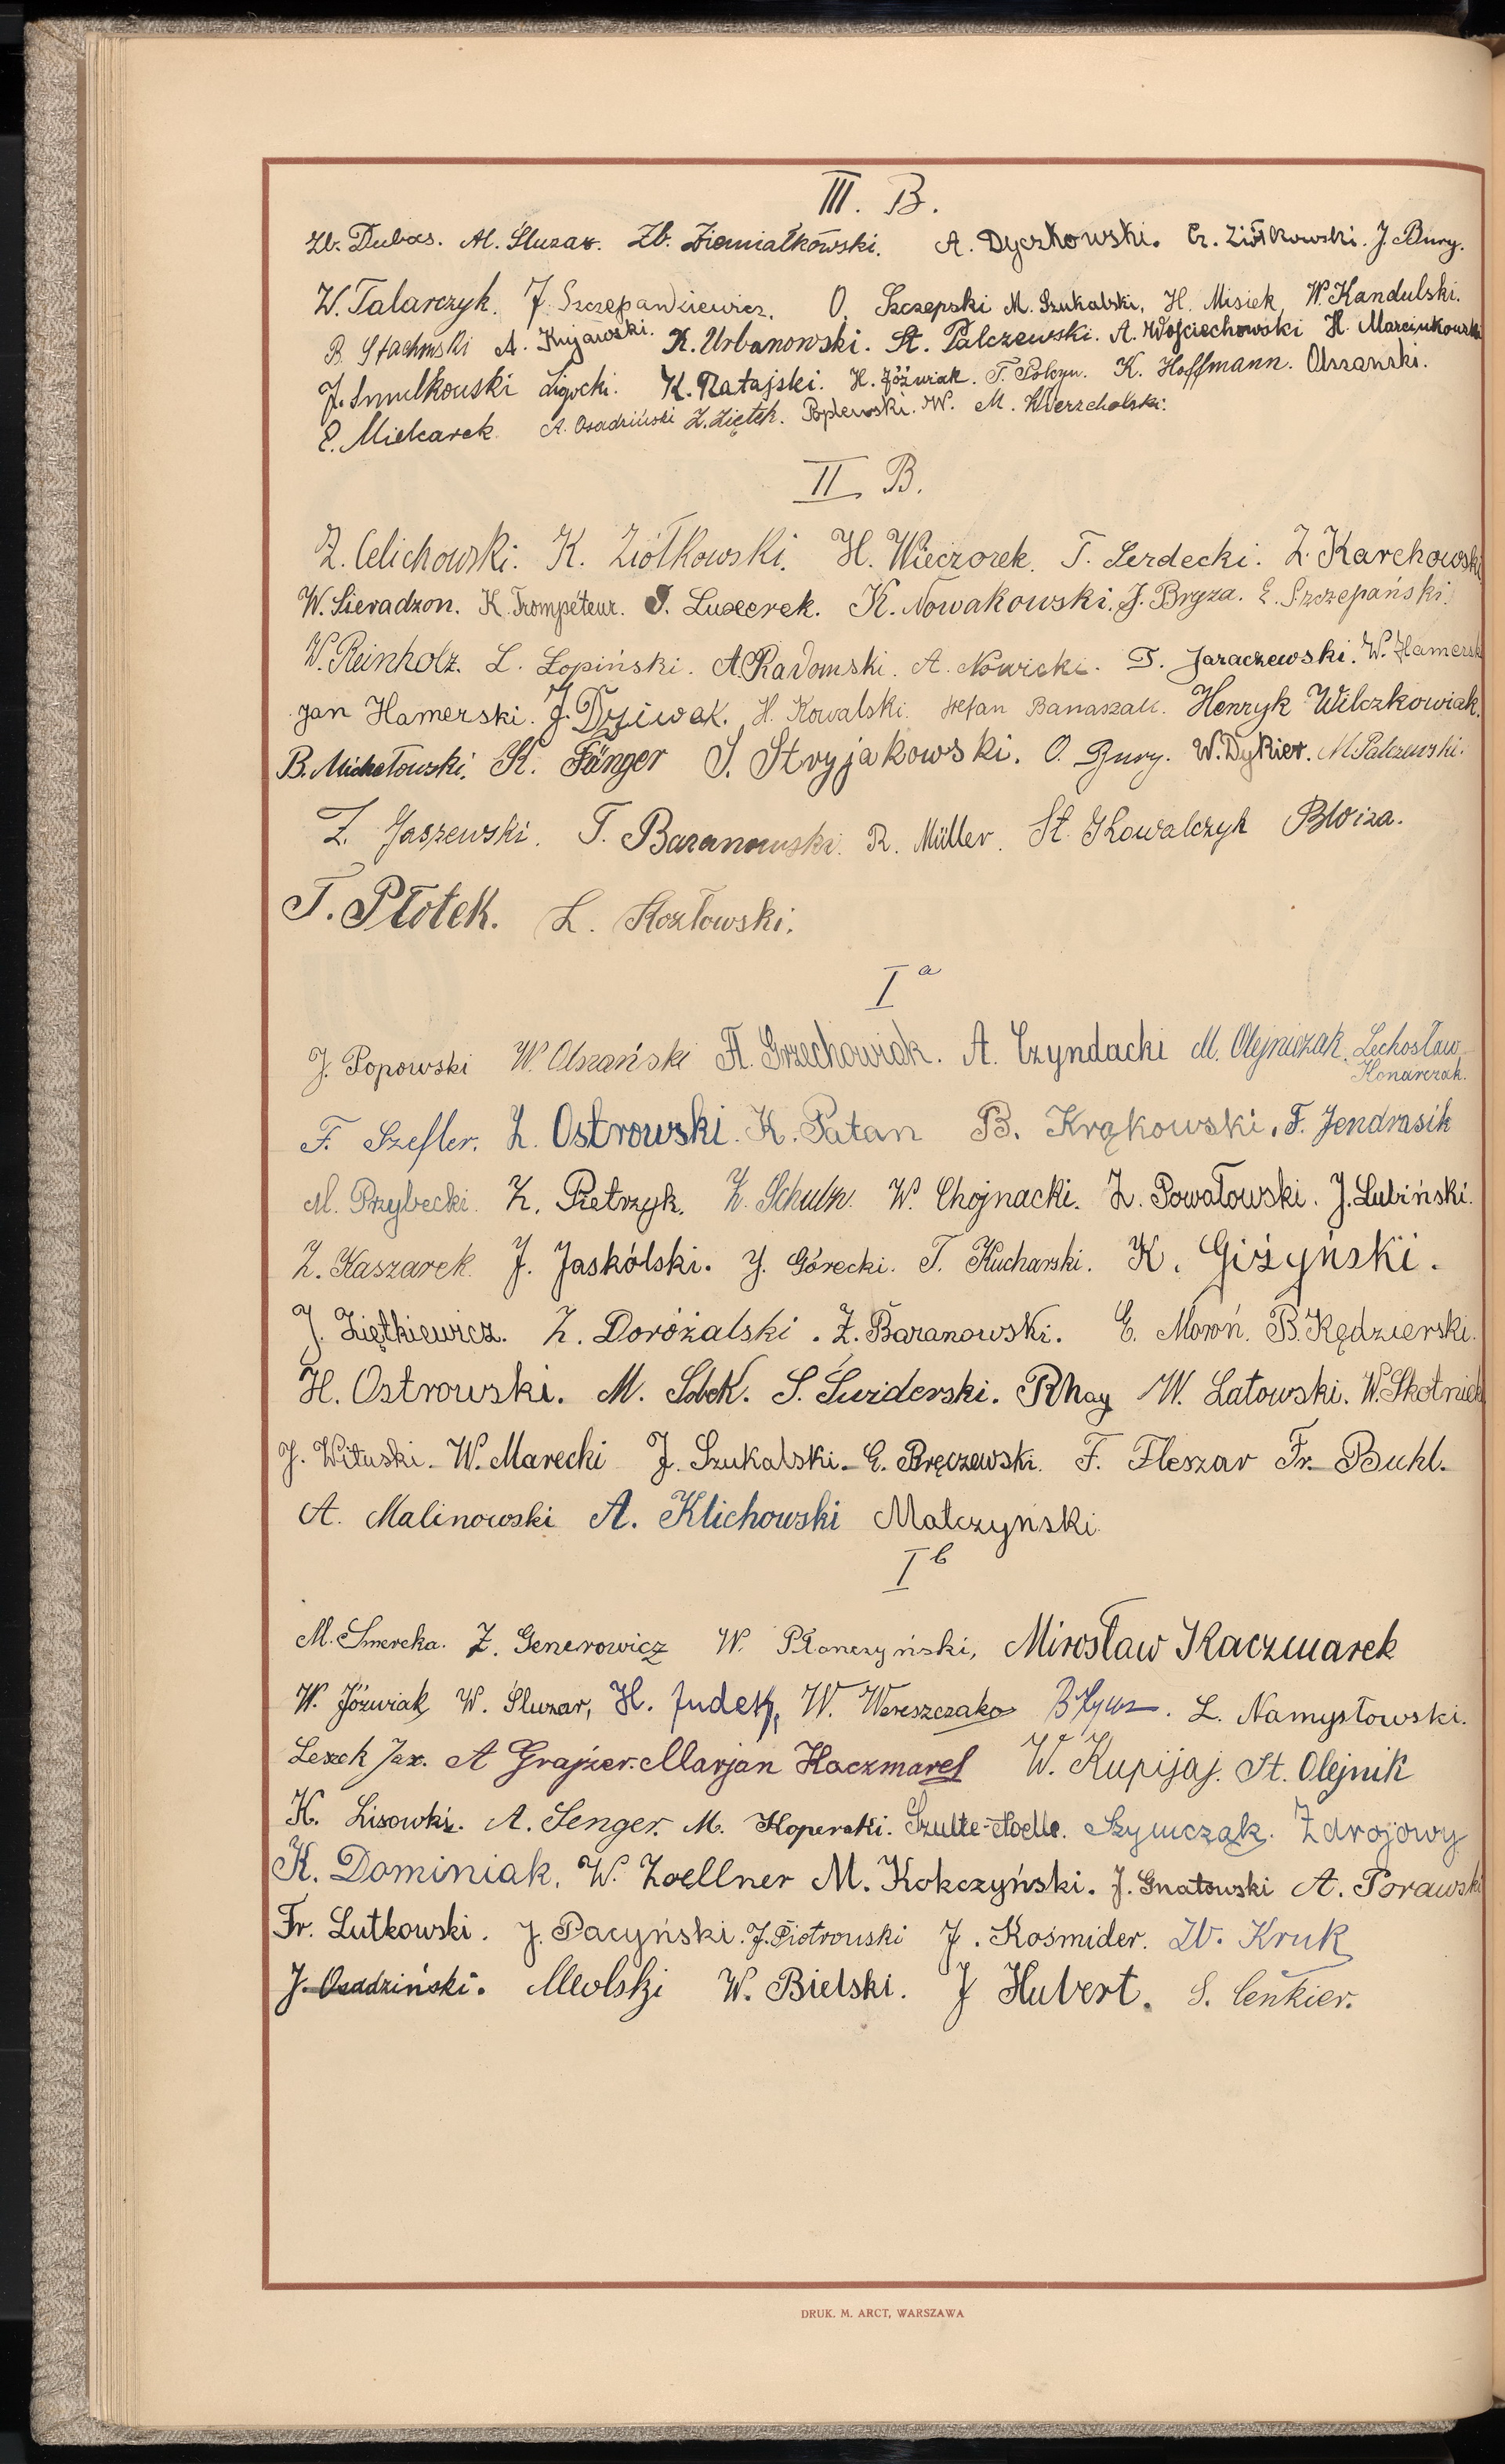 III. B.
Zb. Dubas. Al. Śluzar. Zb. Ziemiałkowski. A. Dyczkowski. Cz. Ziółkowski. J. Bury.
W. Talarczyk. J. Szczepankiewicz. O. Szczepski M. Szukalski, H. Misiek W. Kandulski.
B. Stachowski A. Kujawski. K. Urbanowski. St. Palczewski. A. Wojciechowski H. Marcinkowski
J. Smulkowski Ligocki. K. Ratajski. H. Jóźwiak. T. Połczyn. K. Hoffmann. Olszański.
E. Mielcarek. A. Osadziński Z. Ziętek. Poplewski. W. M. Wierzcholski.
II B.
Z. Celichowski. K. Ziółkowski. H. Wieczorek. T. Serdecki. Z. Karchowski
W. Sieradzon. K. Trompeteur. K. Nowakowski. J. Bryza. E. Szczepański.
W. Reinholz. L. Łopiński. A. Radomski. A. Nowicki. T. Jaraczewski. W. Hamersk
Jan Hamerski. J. Dziwak. H. Kowalski. Stefan Banaszak. Henryk Wilczkowiak.
B. Michałowski. K. Fänger S. Stryjakowski. O. Bury. W. Dykier. M. Palczewski.
Z. Jaszewski. T. Baranowski. R. Müller. St. Kowalczyk Bloiza.
T. Płotek. L. Kozłowski.
I a
J. Popowski W. Olszański A. Grzechowiak. A. Czyndacki M. Olejniczak. Lechosław
Konarczak.
F. Szefler. Z. Ostrowski. K. Patan B. Krąkowski. F. Jendrasik
M. Przybecki. Z. Pietrzyk. Z. Schulz. W. Chojnacki. Z. Powałowski. J. Lubiński.
Z. Kaszarek. J. Jaskólski. J. Górecki. T. Kucharski. K. Giżyński.
J. Ziętkiewicz. Z. Doróżalski. Z. Baranowski. E. Moroń. B. Kędzierski.
H. Ostrowski. M. Sobek. S. Świderski. Rhay W. Latowski. W. Skotnick
J. Wituski. W. Marecki J. Szukalski. E. Bręczewski. F. Fleszar Fr. Buhl.
A. Malinowski A. Klichowski Matczyński
I b
M. Smereka. Z. Generowicz W. Płonczyński, Mirosław Kaczmarek
W. Jóźwiak W. Śluzar, H. Judek, W. Wereszczako L. Namysłowski.
Leszek Jax. A Grajzer. Marjan Kaczmarek W. Kupijaj. St. Olejnik
K. Lisowki. A. Senger. M. Koperski. Szulte-Noelle. Szymczak. Zdrojowy
K. Dominiak, W. Zoellner M. Kokczyński. J. Gnatowski A. Porawski
Fr. Lutkowski. J. Pacyński. J. Piotrowski J. Kośmider. Zb. Kruk
J. Osadziński. Meolski W. Bielski. J Hubert. S. Cenkier.
DRUK. M. ARCT, WARSZAWA